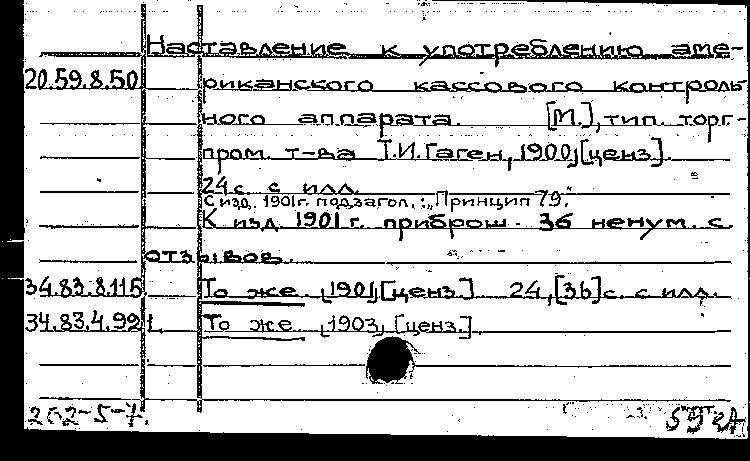 Наставление к употреблению аме-
20.59.8.50 риканского кассового контроль
ного аппарата. [М.], тип. торг-
пром. т-ва Т.И.Гаген, 1900, [ценз].
24 с. с илл.
С изд. 1901г. подзагол.: „Принцип 79."
К изд. 1901 г. приброш. 36 ненум. с.
отзывов.
34.83.8.115 То же. 1901, [ценз.] 24, [36] с. с илл.
34.83.4.921. То же 1903, [ценз.].
262-5-7.